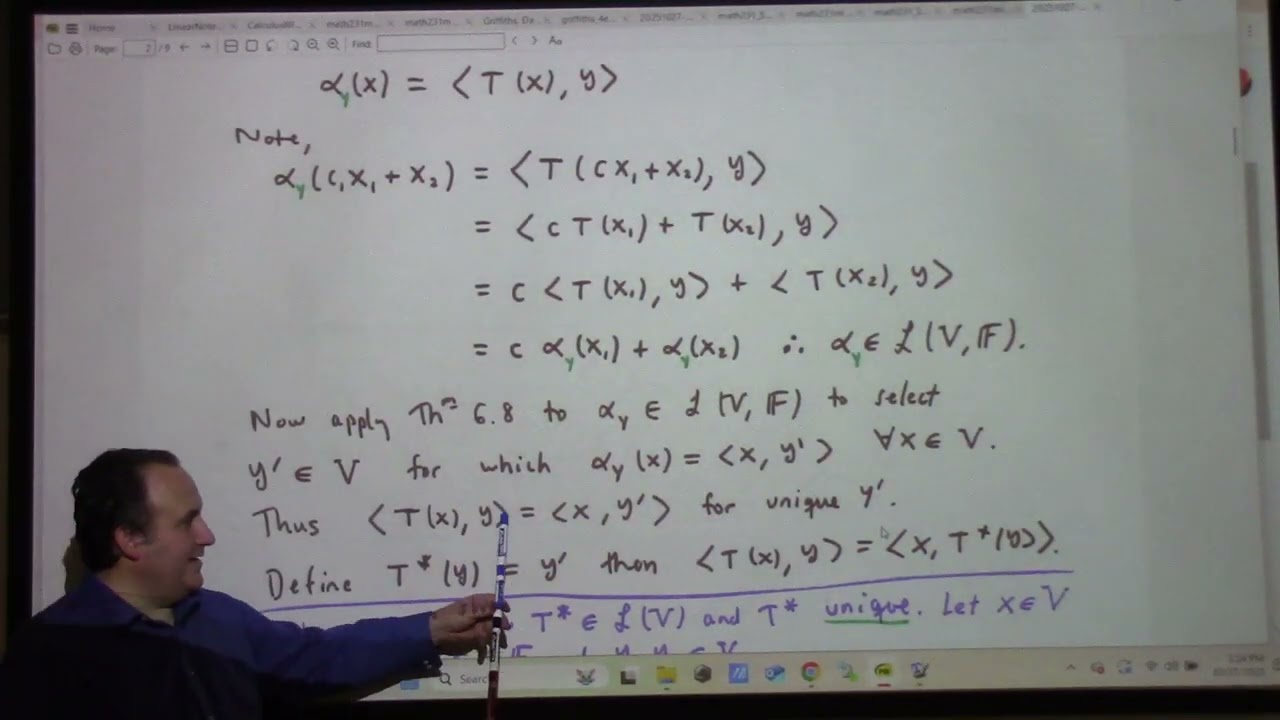 Home LinearNote... Calculus... math231m... math231m... Griffiths, Da... griffiths_4e... 20251027-... math231_S... math231m... math231_S... math231m... 20251027-...
Page: 2 / 9 Find: Aa
α_y(x) = ⟨T(x), y⟩
Note,
α_y(c₁x₁ + x₂) = ⟨T(cx₁ + x₂), y⟩
= ⟨cT(x₁) + T(x₂), y⟩
= c⟨T(x₁), y⟩ + ⟨T(x₂), y⟩
= c α_y(x₁) + α_y(x₂) ∴ α_y ∈ ℒ(V, 𝔽).
Now apply Thᵐ 6.8 to α_y ∈ ℒ(V, 𝔽) to select
y′ ∈ V for which α_y(x) = ⟨x, y′⟩ ∀x ∈ V.
Thus ⟨T(x), y⟩ = ⟨x, y′⟩ for unique y′.
Define T*(y) = y′ then ⟨T(x), y⟩ = ⟨x, T*(y)⟩.
T* ∈ ℒ(V) and T* unique. Let x ∈ V
Search